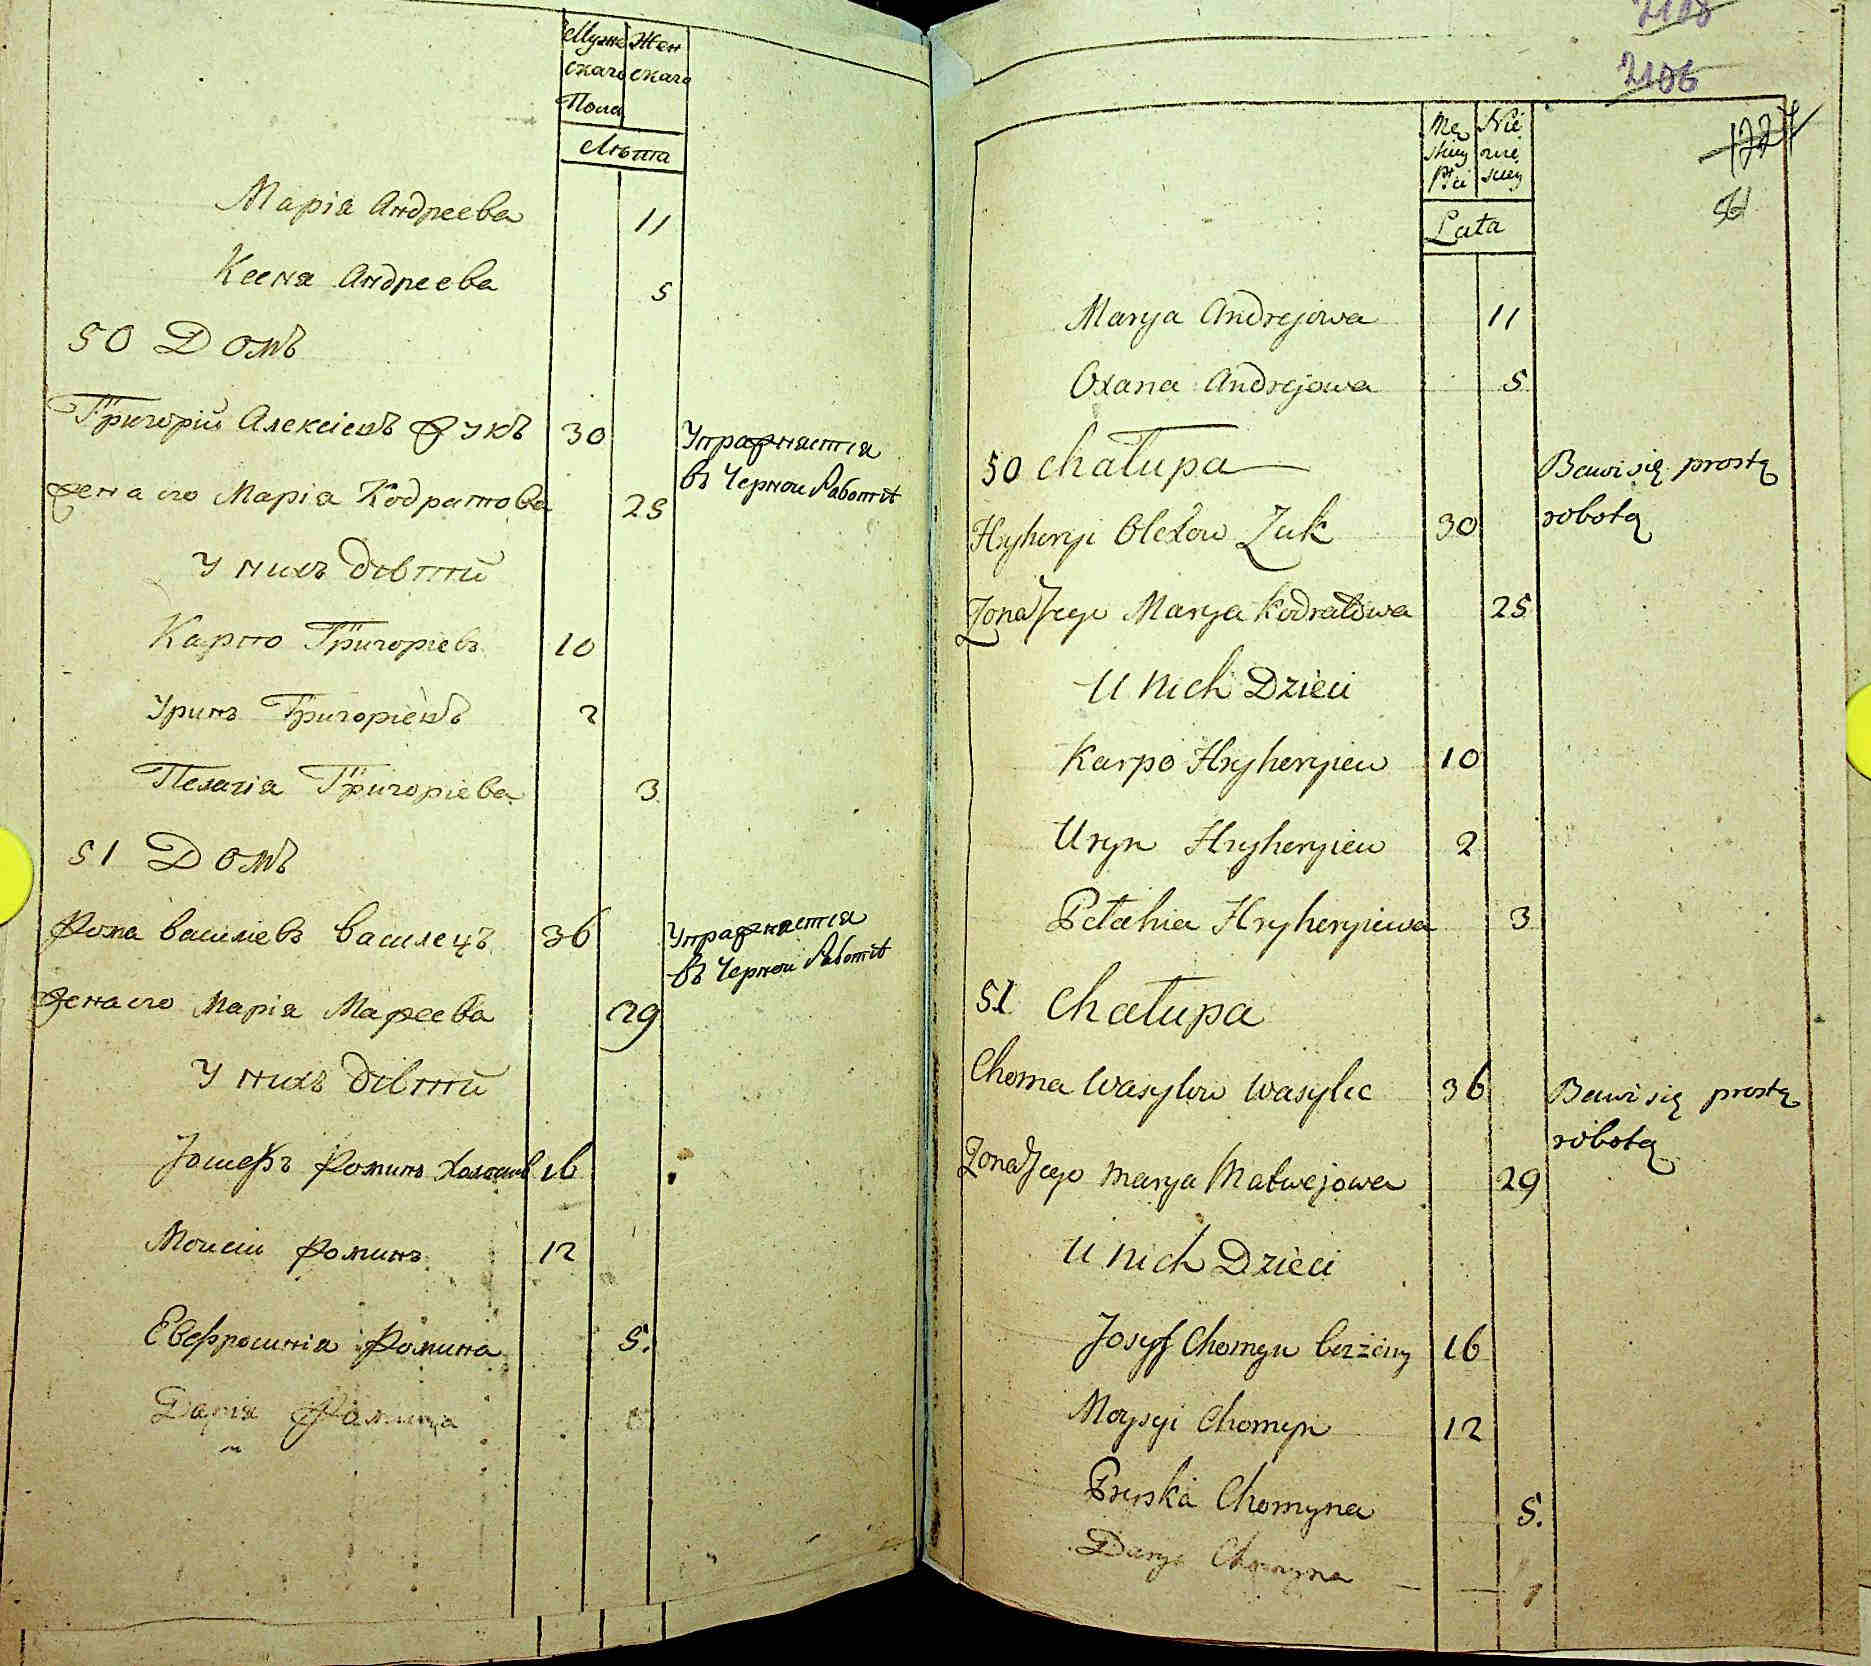 Муже Жен
скаго скаго
Пола
Лѣта
Марія Андреева 11
Ксеня Андреева 5
50 Домъ
Григорій Алексіевъ Жукъ 30 Упражняется
въ Черной Работѣ
Жена его Марія Кодратова 25
У нихъ Дѣтей
Карпо Григоріевъ 10
Уринъ Григоріевъ 2
Пелагія Григоріева 3
51 Домъ
Фома Василіевъ Василецъ 36 Упражняется
въ Черной Работѣ
Жена его Марія Мафеева 29
У нихъ Дѣтей
Іосифъ Фоминъ Холостъ 16
Моисій Фоминъ 12
Евфросинія Фомина 5.
Дарія Фомина
2106
1227
54
Mę Nie
skiey wie
Płci sciey
Lata
Marya Andrejowa 11
Oxana Andrejowa 5
50 Chałupa
Bawi się prostą
robotą
Hryhoryi Olexow Zuk 30
Zona Jego Marya Kodratowa 25
U nich Dzieci
Karpo Hryhoryiew 10
Uryn Hryhoryiew 2
Pełahia Hryhoryiewa 3
51 Chałupa
Choma Wasylow Wasylec 36 Bawi się prostą
robotą
Zona Jego Marya Matwejowa 29
U nich Dzieci
Josyf Chomyn bezżeny 16
Moysyi Chomyn 12
Pryska Chomyna 5.
Darya Chomyna 1